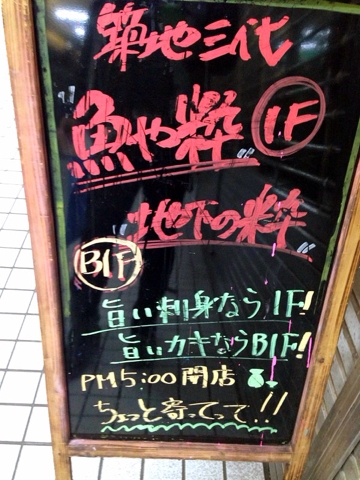 築地三代
"魚や粋" 1.F
"地下の粋"
B1F
旨い刺身なら1F!
旨いカキならB1F!
PM5:00開店
ちょっと寄ってって!!